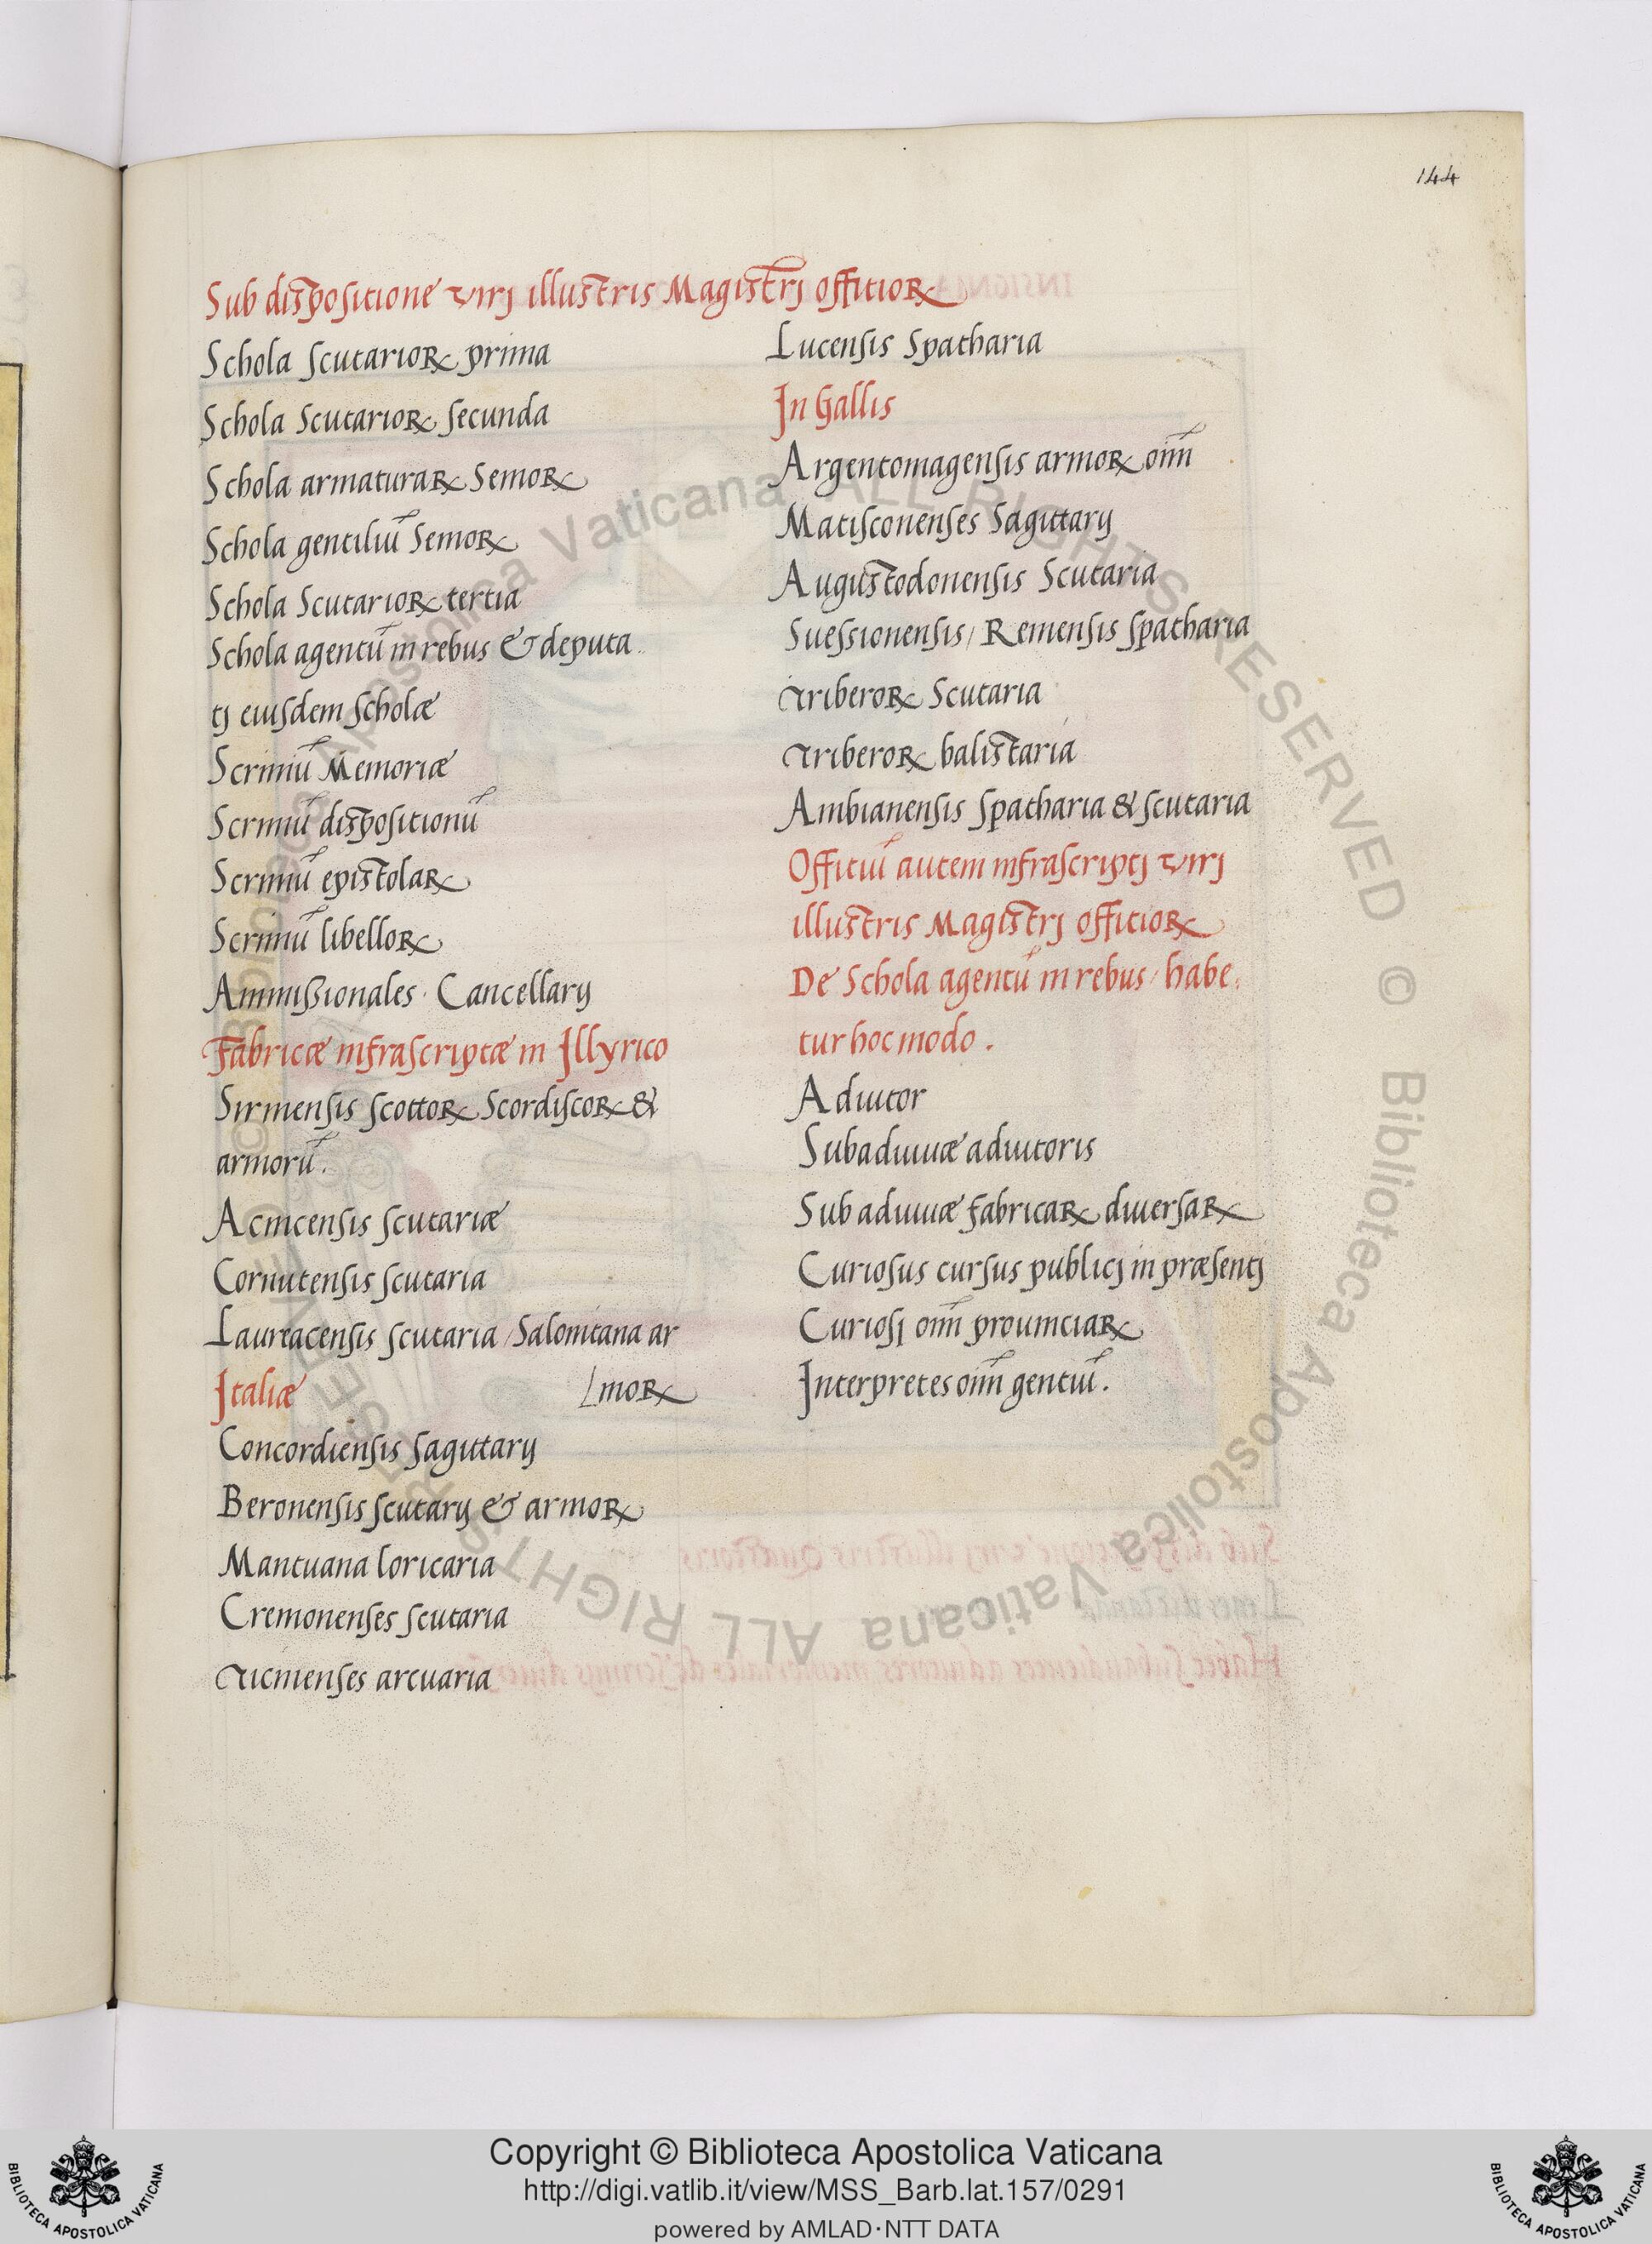 144
Sub dispositione virj illustris Magistrj officioꝝ
Schola scutarioꝝ prima
Schola Scutarioꝝ secunda
Schola armaturaꝝ Semoꝝ
Schola gentiliū Semoꝝ
Schola Scutarioꝝ tertia
Schola agentū in rebus & deputa
tj eiusdem scholæ
Scriniū Memoriæ
Scriniū dispositionū
Scriniū epistolaꝝ
Scriniū libelloꝝ
Ammissionales. Cancellarij
Fabricæ infrascriptæ in Jllyrico
Sirmensis scottoꝝ Scordiscoꝝ &
armorū.
Acincensis scutariæ
Cornutensis scutaria
Laureacensis scutaria / Salonitana ar
moꝝ
Jtaliæ
Concordiensis sagittarij
Beronensis scutarij & armoꝝ
Mantuana loricaria
Cremonenses scutaria
Ticinenses arcuaria
Lucensis Spatharia
Jn Gallis
Argentomagensis armoꝝ oīm
Matisconenses Sagittarij
Augustodonensis Scutaria
Suessionensis / Remensis spatharia
Triberoꝝ Scutaria
Triberoꝝ balistaria
Ambianensis spatharia & scutaria
Officiū autem infrascriptj virj
illustris Magistrj officioꝝ
De Schola agentū in rebus / habe
tur hoc modo.
Adiutor
Subadiuuæ adiutoris
Sub adiuuæ fabricaꝝ diuersaꝝ
Curiosus cursus publicj in præsentj
Curiosj oīm prouinciaꝝ
Jnterpretes oīm gentiū.
Copyright © Biblioteca Apostolica Vaticana
http://digi.vatlib.it/view/MSS_Barb.lat.157/0291
powered by AMLAD·NTT DATA
BIBLIOTECA APOSTOLICA VATICANA
BIBLIOTECA APOSTOLICA VATICANA
© Biblioteca Apostolica Vaticana ALL RIGHTS RESERVED © Biblioteca Apostolica Vaticana ALL RIGHTS RESERVED